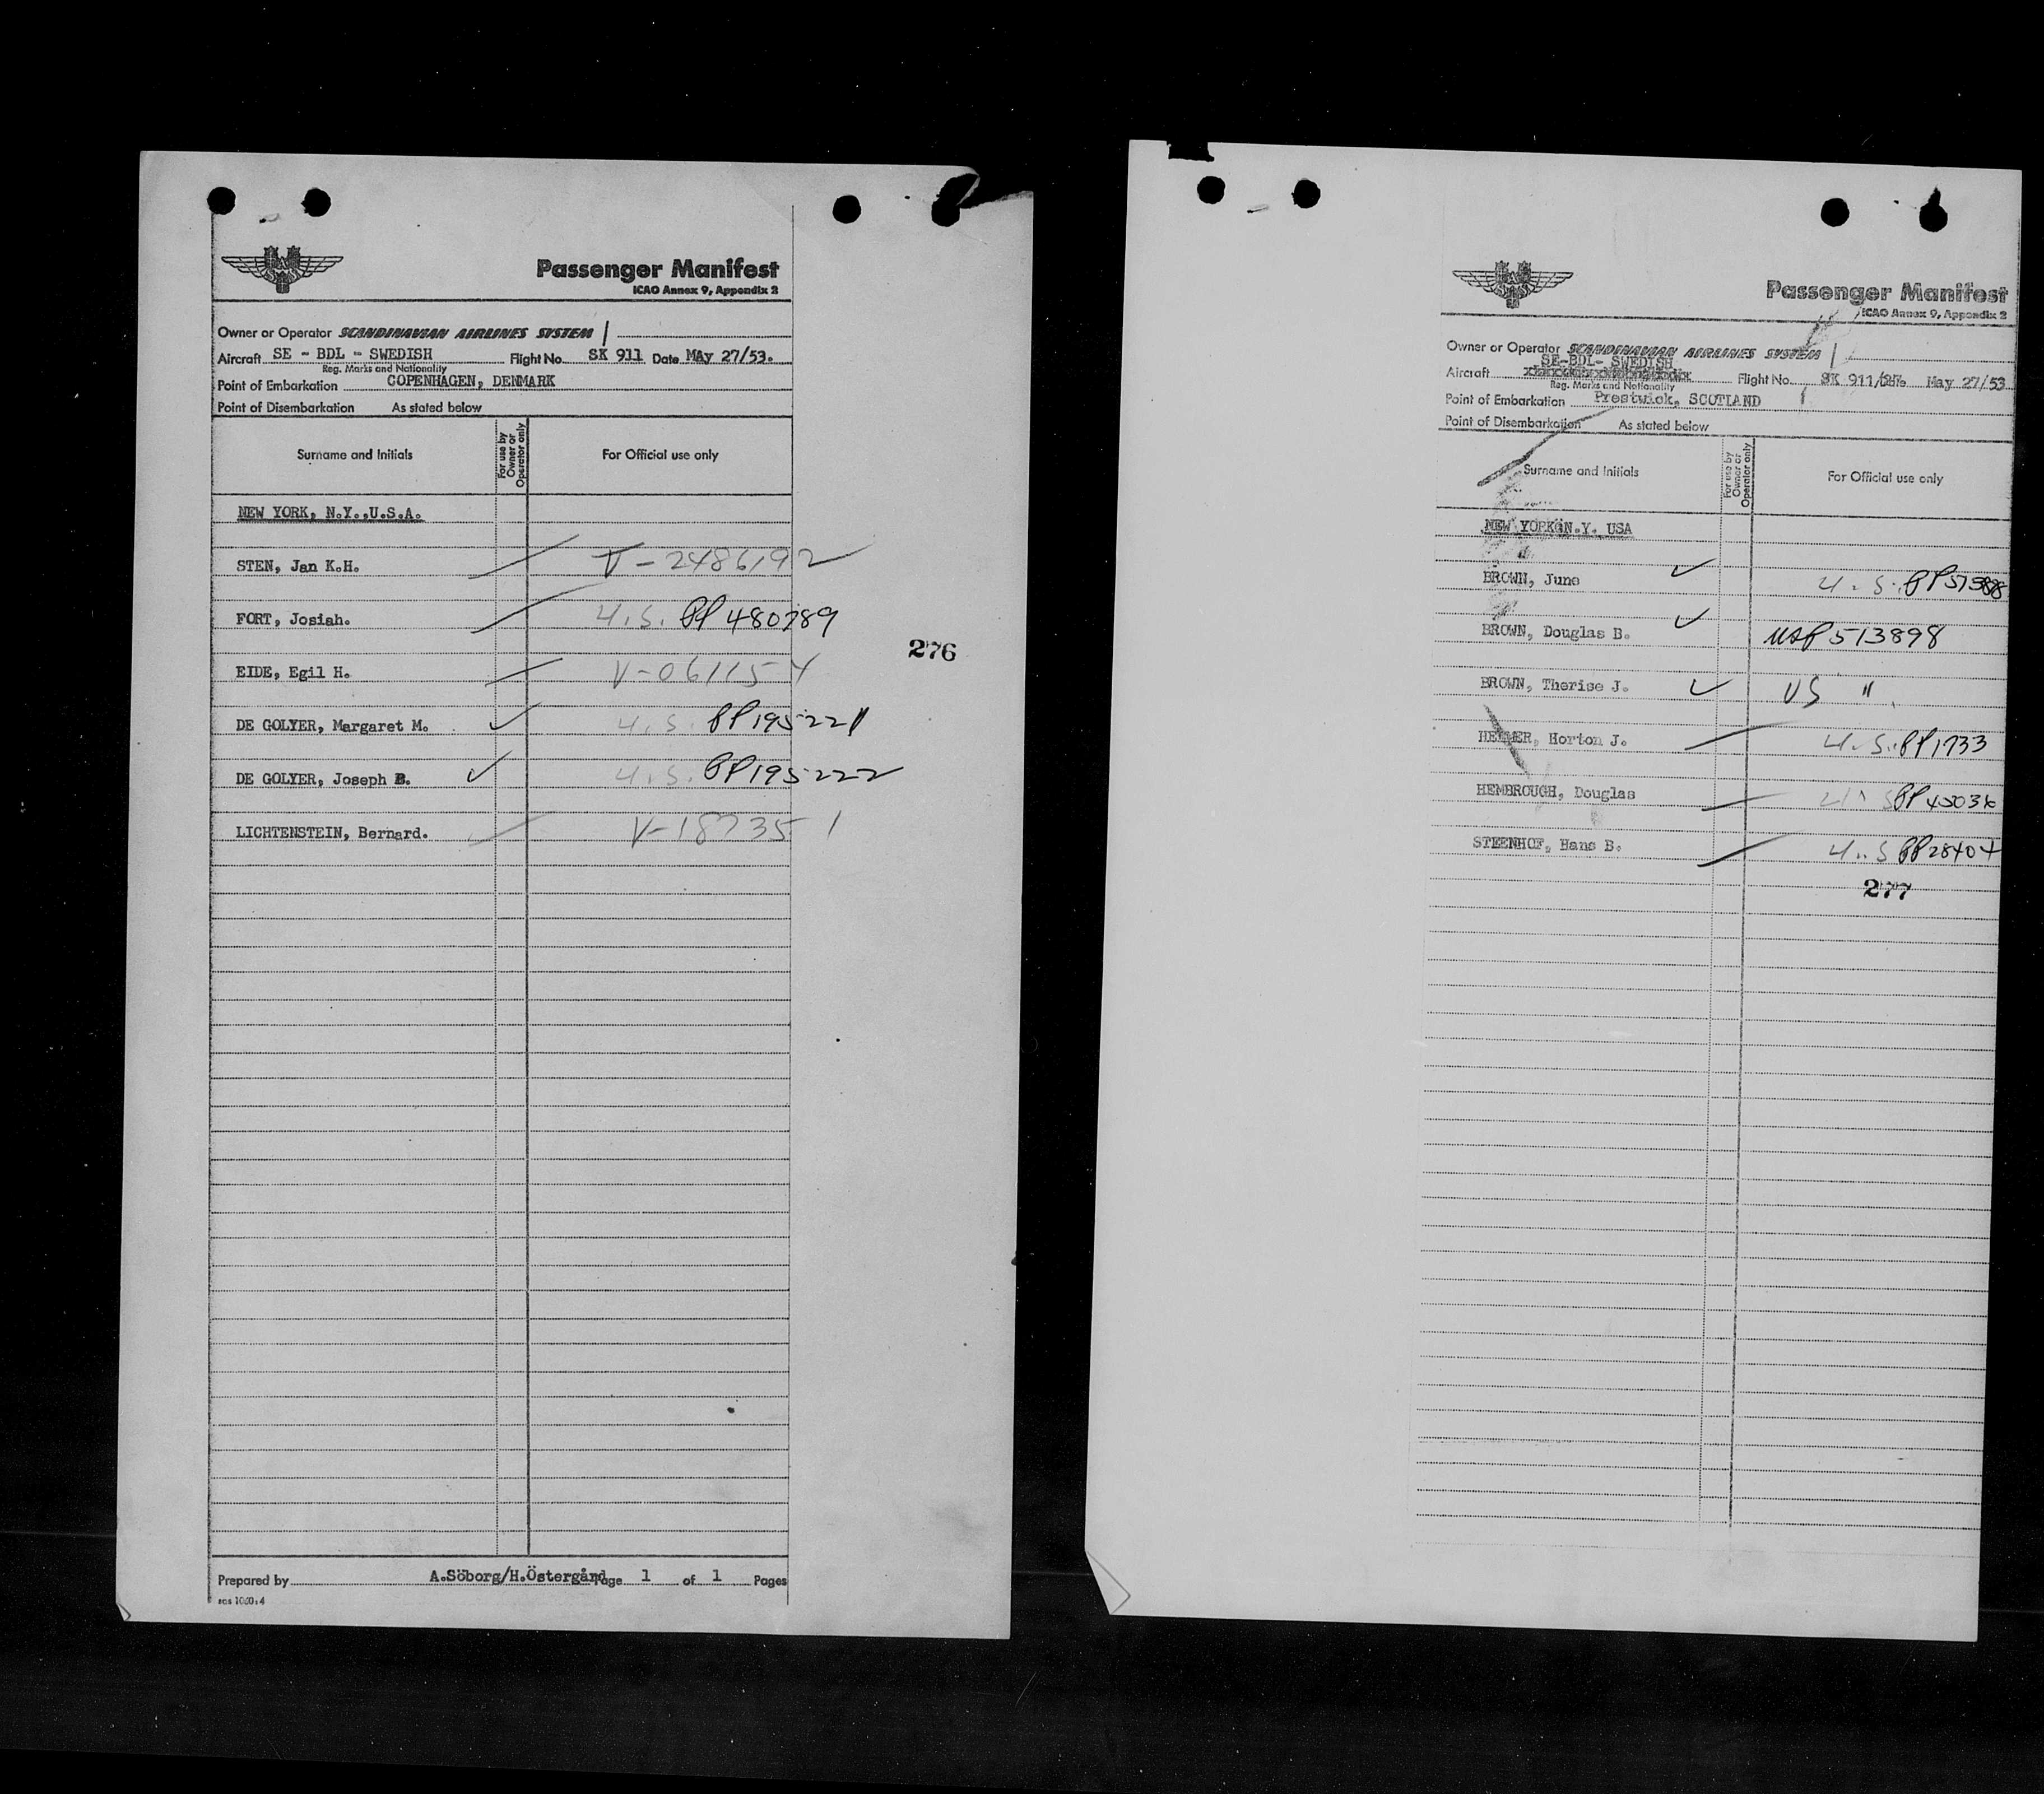 Passenger Manifest
ICAO Annex 9, Appendix 2
Owner or Operator SCANDINAVIAN AIRLINES SYSTEM
Aircraft SE - BDL - SWEDISH Flight No. SK 911 Date MAy 27/53.
Reg. Marks and Nationality
Point of Embarkation COPENHAGEN, DENMARK
Point of Disembarkation As stated below
Surname and Initials For use by Owner or Operator only For Official use only
NEW YORK, N.Y.,U.S.A.
STEN, Jan K.H. V-2486192
FORT, Josiah. U.S. PP 480789
276
EIDE, Egil H. V-061115 4
DE GOLYER, Margaret M. U.S. PP195221
DE GOLYER, Joseph B. U.S. PP195222
LICHTENSTEIN, Bernard. V-187351
Prepared by A.Söborg/H.Östergård Page 1 of 1 Pages
sas 1060:4
Passenger Manifest
ICAO Annex 9, Appendix 2
Owner or Operator SCANDINAVIAN AIRLINES SYSTEM
SE-BDL- SWEDISH
Aircraft Flight No. SK 911/ May 27/53
Reg. Marks and Nationality
Point of Embarkation Prestwick, SCOTLAND
Point of Disembarkation As stated below
Surname and Initials For use by Owner or Operator only For Official use only
NEW YORK N.Y. USA
BROWN, June U.S.
BROWN, Douglas B. USP 513898
BROWN, Therise J. US "
Horton J. U.S. PP1733
HEMBROUGH, Douglas PP45036
STEENHOF, Hans B. U.S PP28404
277